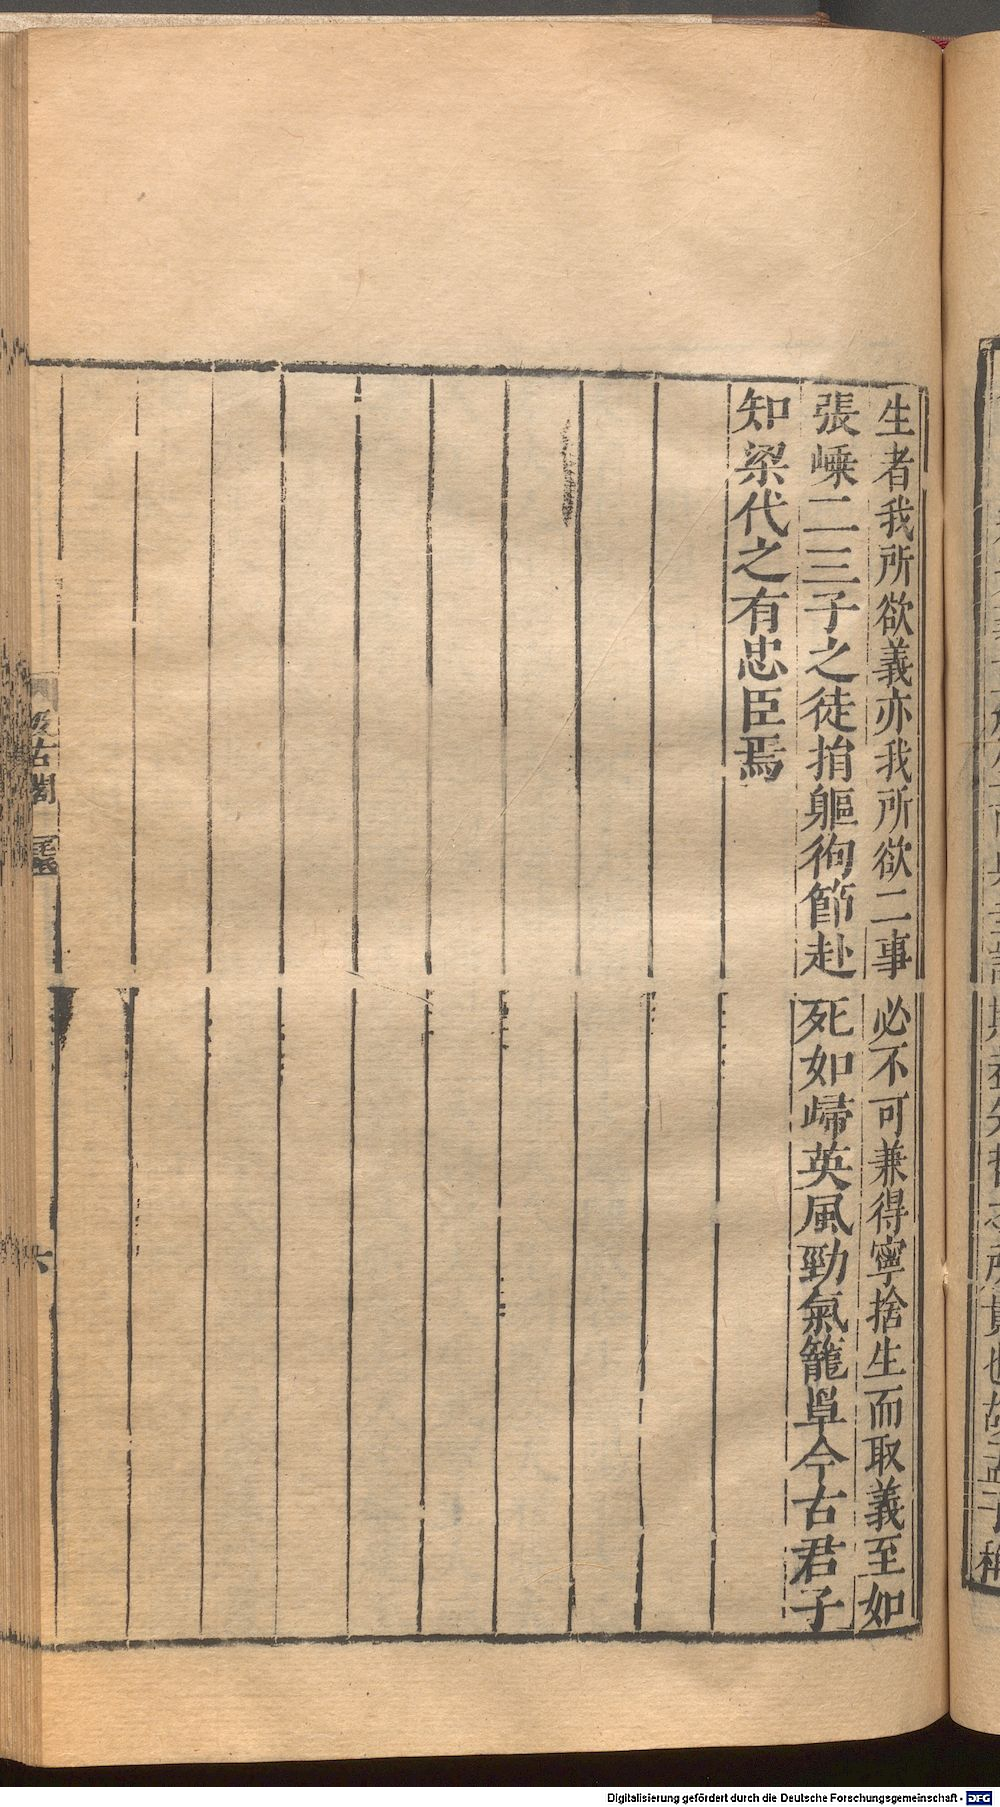 生者我所欲義亦我所欲二事必不可兼得寧捨生而取義至如
張嵊二三子之徒捐軀徇節赴死如歸英風勁氣籠罩今古君子
知梁代之有忠臣焉
汲古閣
六
Digitalisierung gefördert durch die Deutsche Forschungsgemeinschaft - DFG